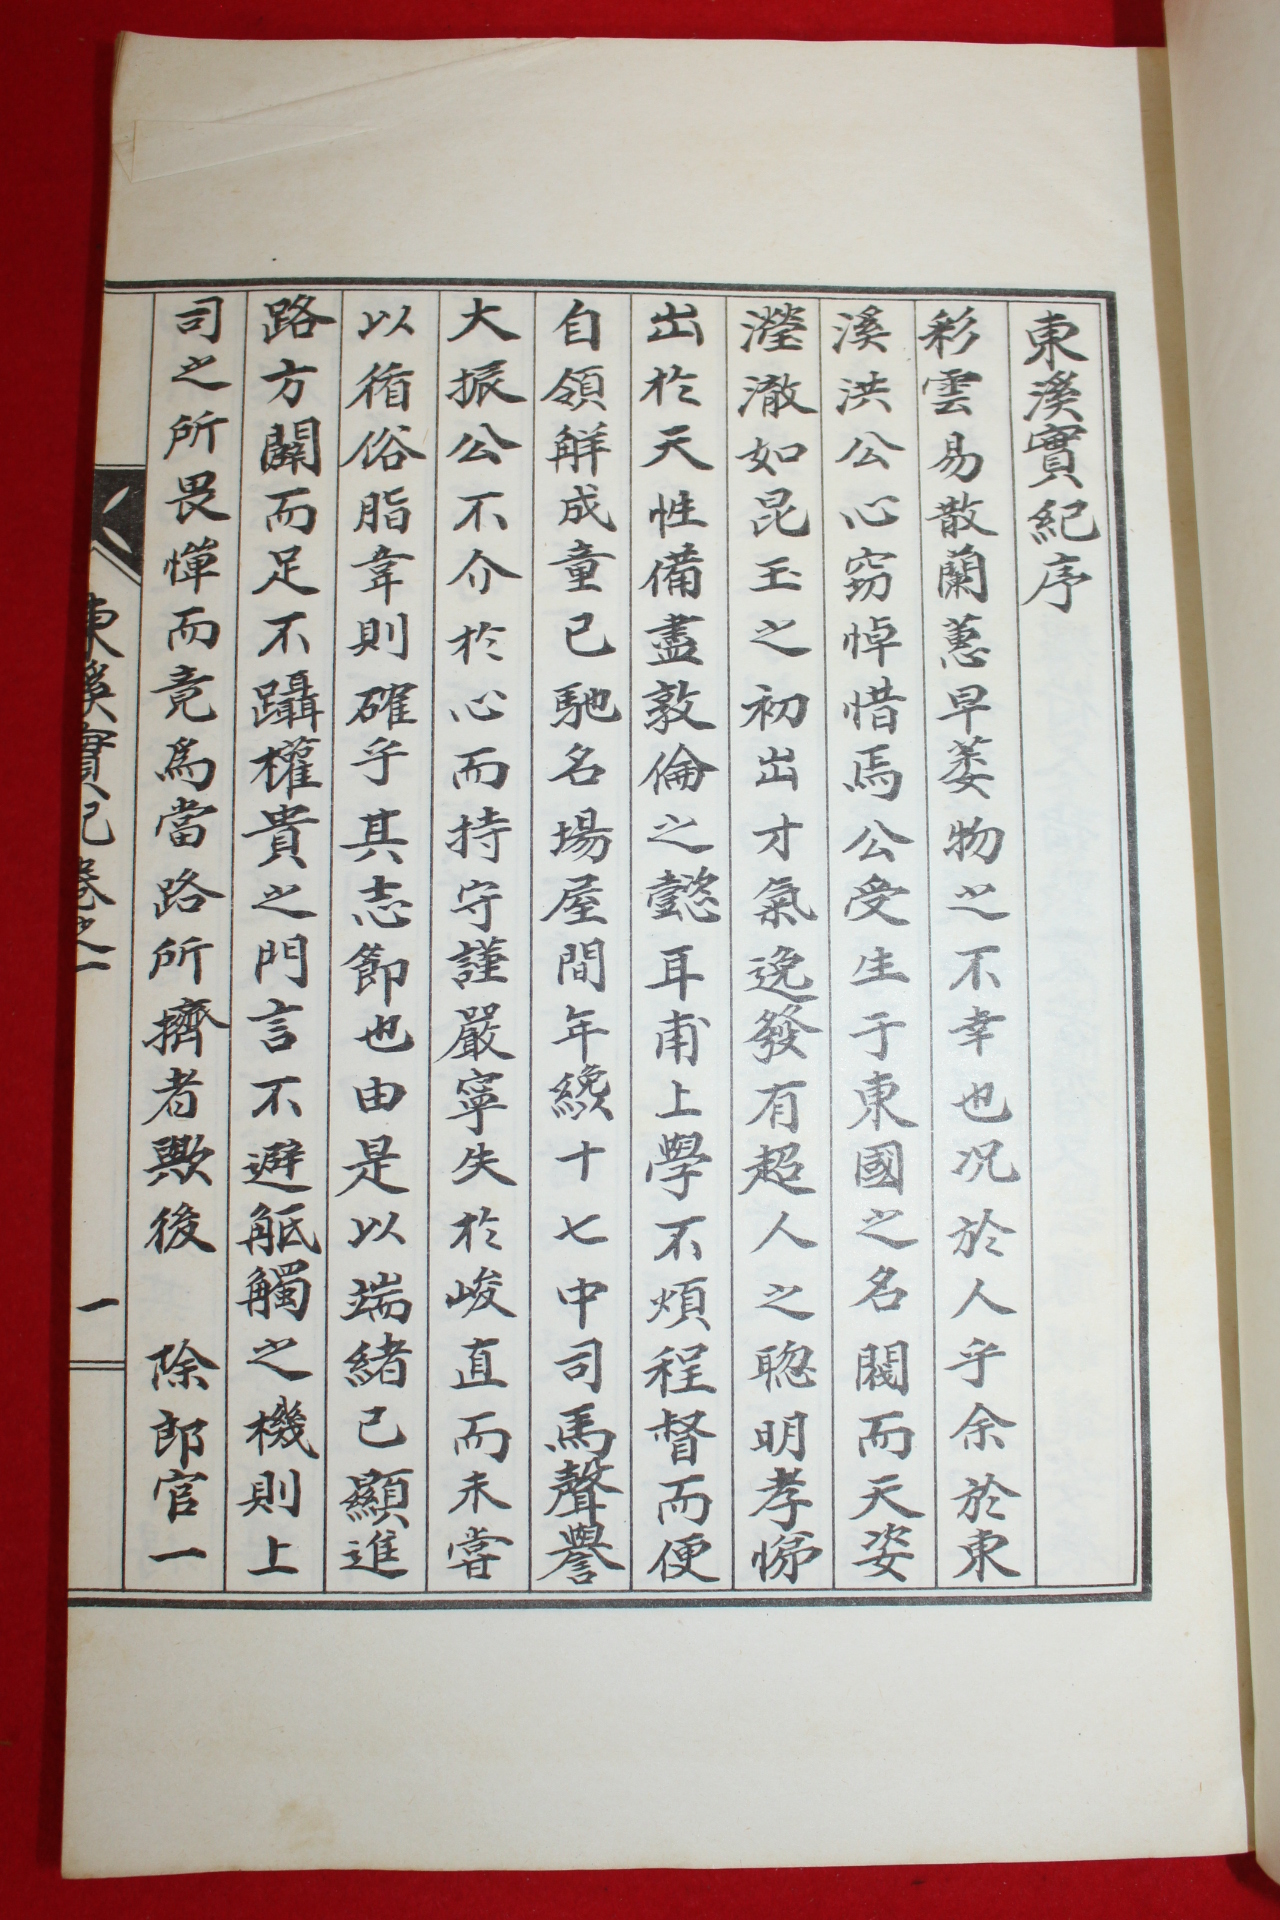 東溪實紀序
彩雲易散蘭蕙早萎物之不幸也况於人乎余於東
溪洪公心窃悼惜焉公受生于東國之名閥而天姿
瀅澈如昆玉之初出才氣逸發有超人之聰明孝悌
出於天性備盡敦倫之懿耳甫上學不煩程督而便
自領解成童已馳名場屋間年纔十七中司馬聲譽
大振公不介於心而持守謹嚴寧失於峻直而未嘗
以循俗脂韋則確乎其志節也由是以端緖已顯進
路方闢而足不躡權貴之門言不避觝觸之機則上
司之所畏憚而竟爲當路所擠者歟後 除郎官一
東溪實紀卷之一 一